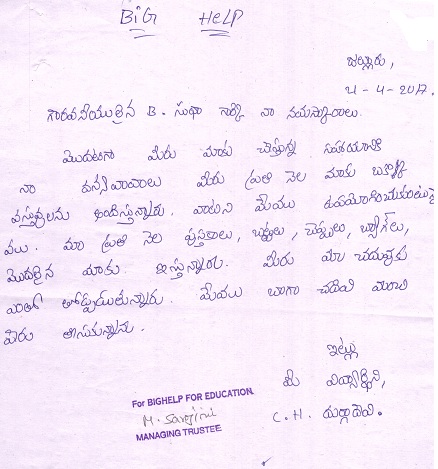 BiG HeLP
జల్లూరు,
4-4-2017.
గౌరవనీయులైన B. సుధా గార్కి నా నమస్కారాలు.
మొదటగా మీరు మాకు చేస్తున్న సహాయానికి
నా ధన్యవాదాలు మీరు ప్రతి నెల మాకు ఒక్కొక్క
వస్తువులను అందిస్తున్నారు. వాటిని మేము
మా ప్రతి నెల పుస్తకాలు, బట్టలు, చెప్పులు, బ్యాగ్‌లు,
మొదలైన మాకు ఇస్తున్నారు. మీరు మా చదువుకు
ఎంతో తోడ్పడుతున్నారు. మేము బాగా చదివి మంచి
పేరు తీసుకున్నాను.
ఇట్లు
మీ విద్యార్థిని,
C.H. దుర్గాదేవి.
For BIGHELP FOR EDUCATION.
M. Sarojini
MANAGING TRUSTEE